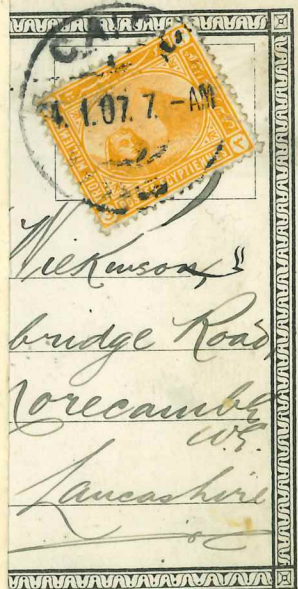 CA
1.07. 7-AM
Wilkinson,
bridge Road,
orecambe
W.E.
Lancashire